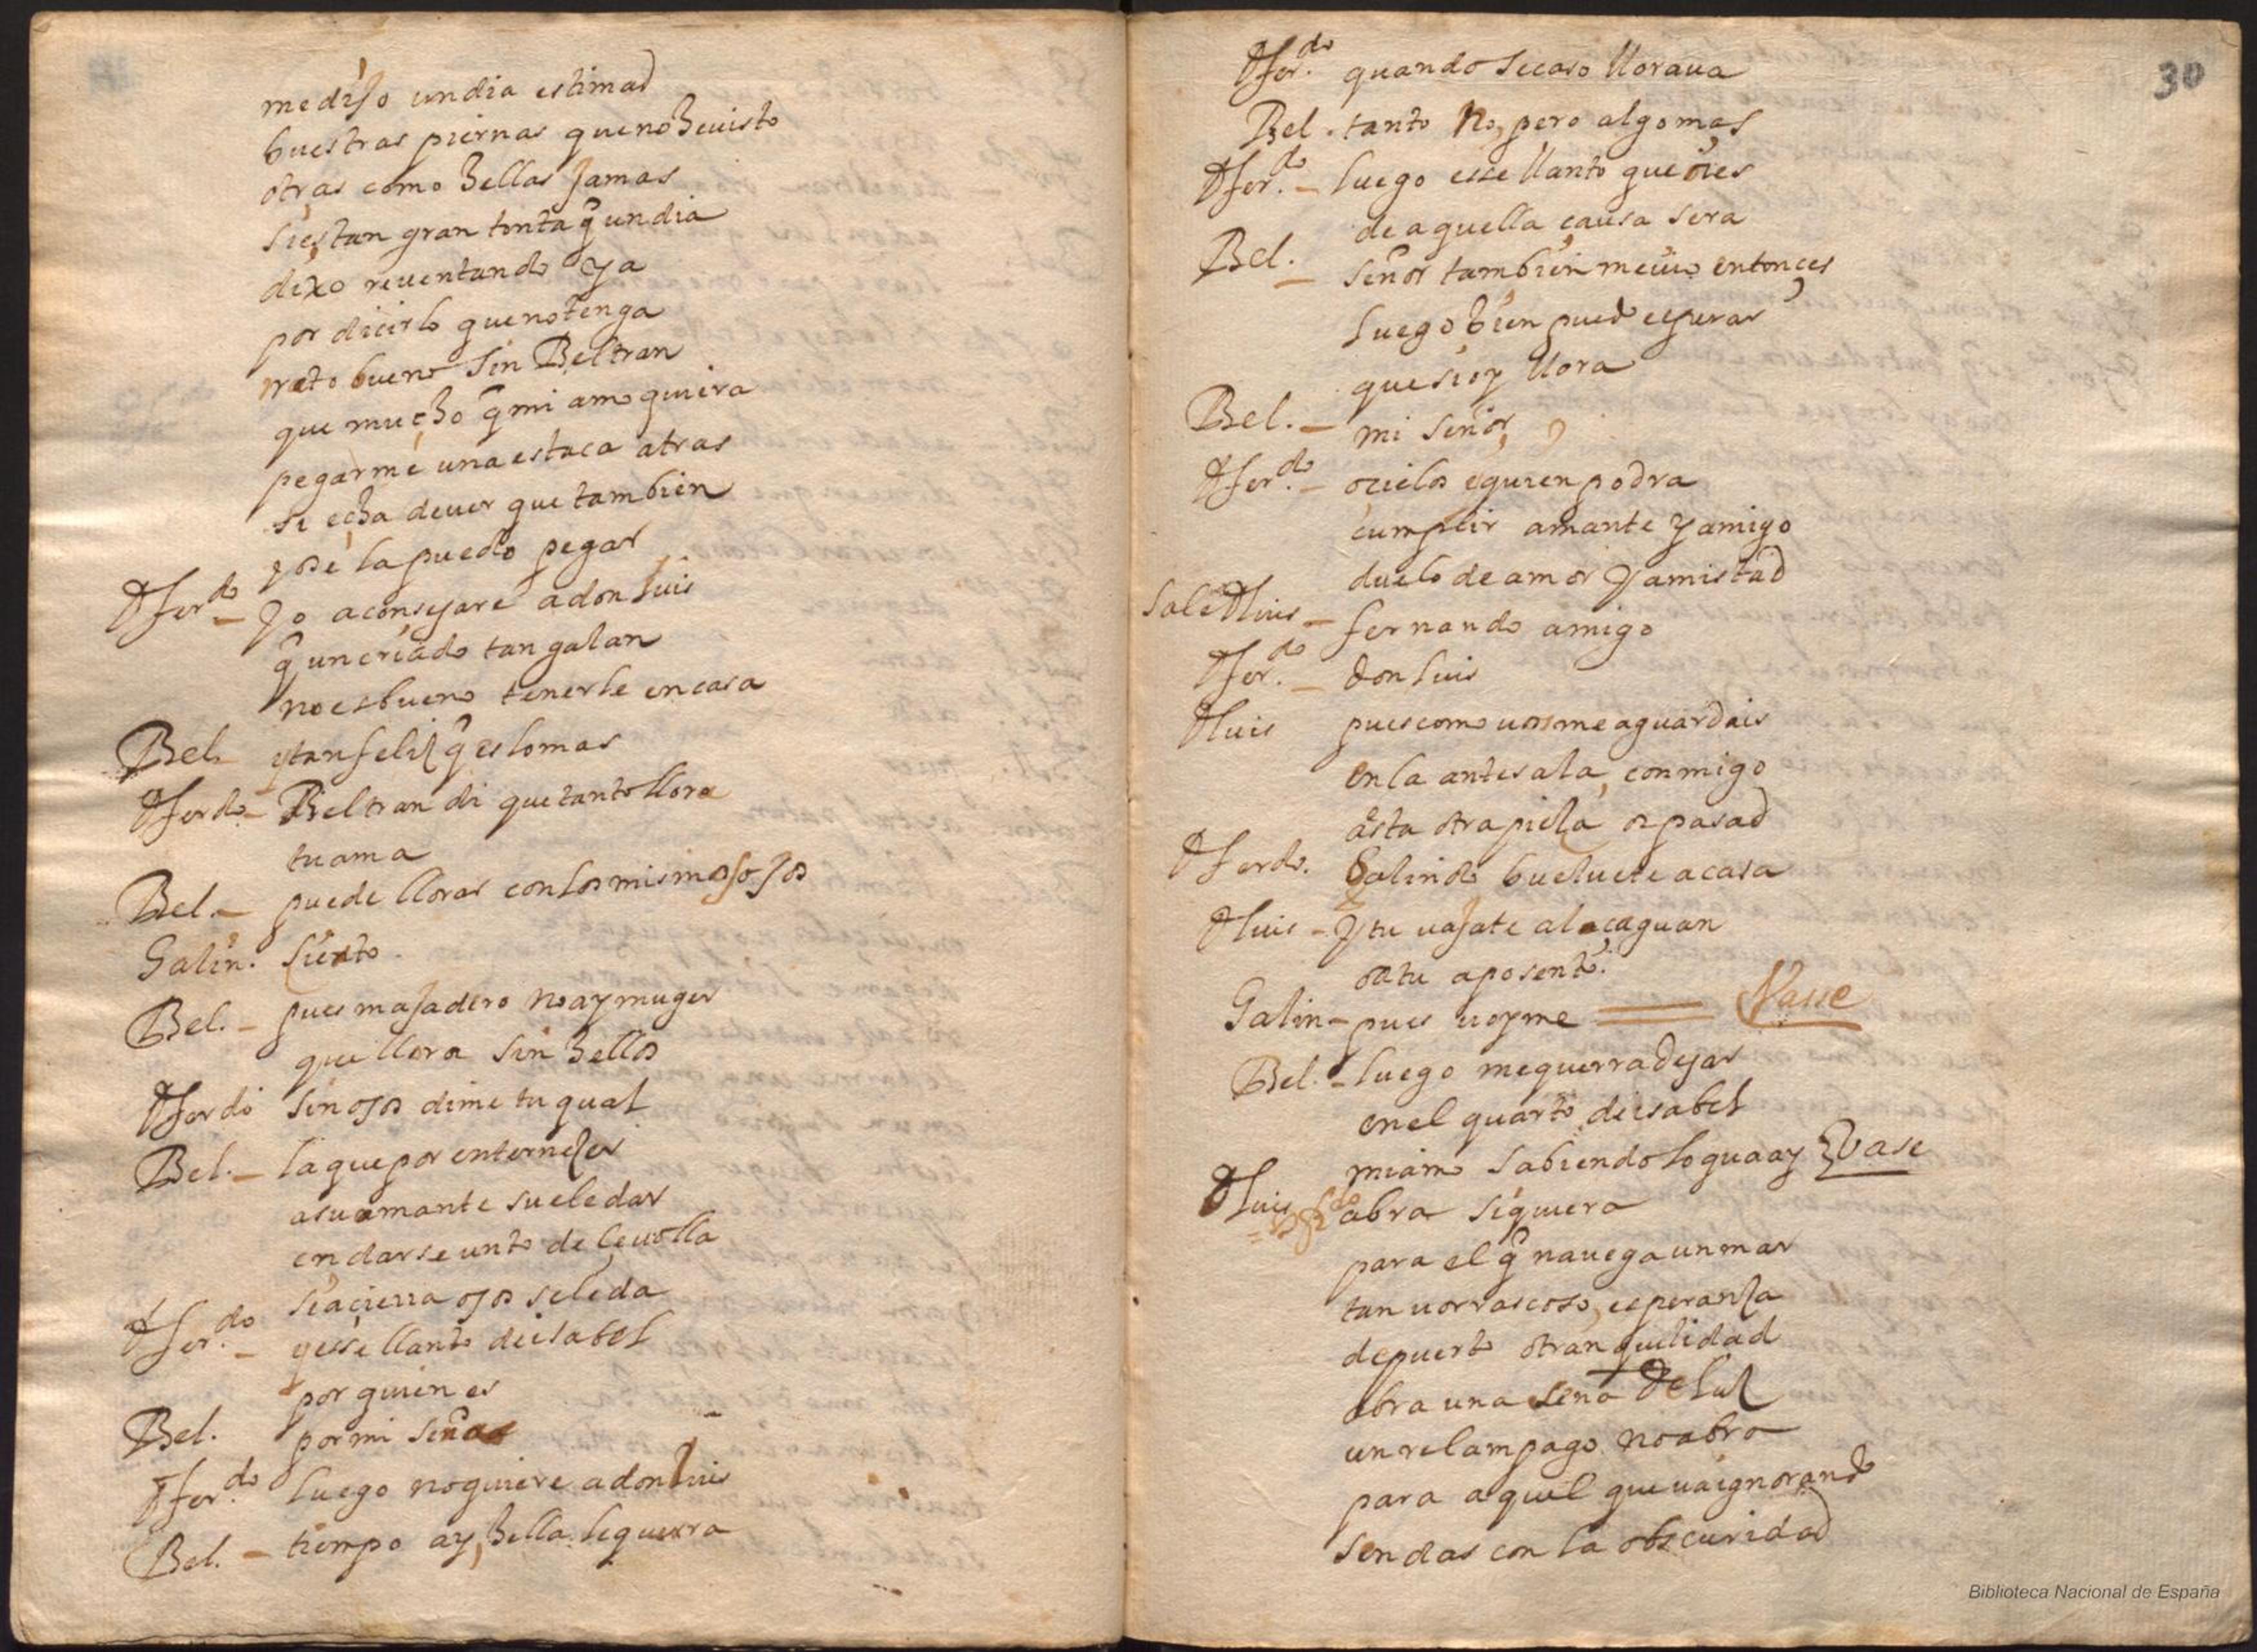 me dijo un dia estimad
buestras piernas que no he uisto
otras como hellas jamas
si es tan gran tonta q̃ un dia
dixo reuentando ya
por dicirlo que no tenga
rato bueno sin Beltran
que mucho q̃ mi amo quiera
pegarme una estaca atras
si echa de uer que tambien
yo se la puedo pegar
D fer.do – Yo aconsejare a don luis
q̃ un criado tan galan
no es bueno tenerle en casa
Bel. y tan feliz q̃ es lo mas
D ferdo – Beltran di que tanto llora
tu ama
Bel. – puede llorar con los mismos ojos
Galin. sierto
Bel. – pues majadero no ay muger
que llora sin hellos
D ferdo sin ojos dime tu qual
Bel. – la que por enternezer
a su amante suele dar
en darse unto de çeuolla
si a cierra ojos se le da
D fer.do – y esse llanto de isabel
por quien es
Bel. por mi señor
D fer.do luego no quiere a don luis
Bel. – tiempo ay, hella le querra
30
D fer.do quando se caso lloraua
Bel. tanto no, pero algo mas
D fer.do – luego esse llanto que oies
de aquella causa sera
Bel. – señor tambien me uio entonces
luego bien puedo esperar
que si oy llora
Bel. – mi señor
D fer.do – o cielos quien podra
cumplir amante y amigo
duelo de amor y amistad
Sale D luis – fernando amigo
D fer.do – don luis
D luis pues como uos me aguardais
en la antesala, conmigo
a esta otra pieza os pasad
D ferdo. Galindo bueluete a casa
D luis – Y tu uajate al çaguan
o a tu aposento.
Galin – pues uoyme Vasse
Bel. – luego me querra dejar
en el quarto de isabel
mi amo sabiendo lo que ay Vase
D luis abra siquiera
para el q̃ nauega un mar
tan uorrascoso, esperanza
de puerto o tranquilidad
abra una seña de luz
un relampago no abra
para aquel que ua ignorando
sendas con la obscuridad
Biblioteca Nacional de España